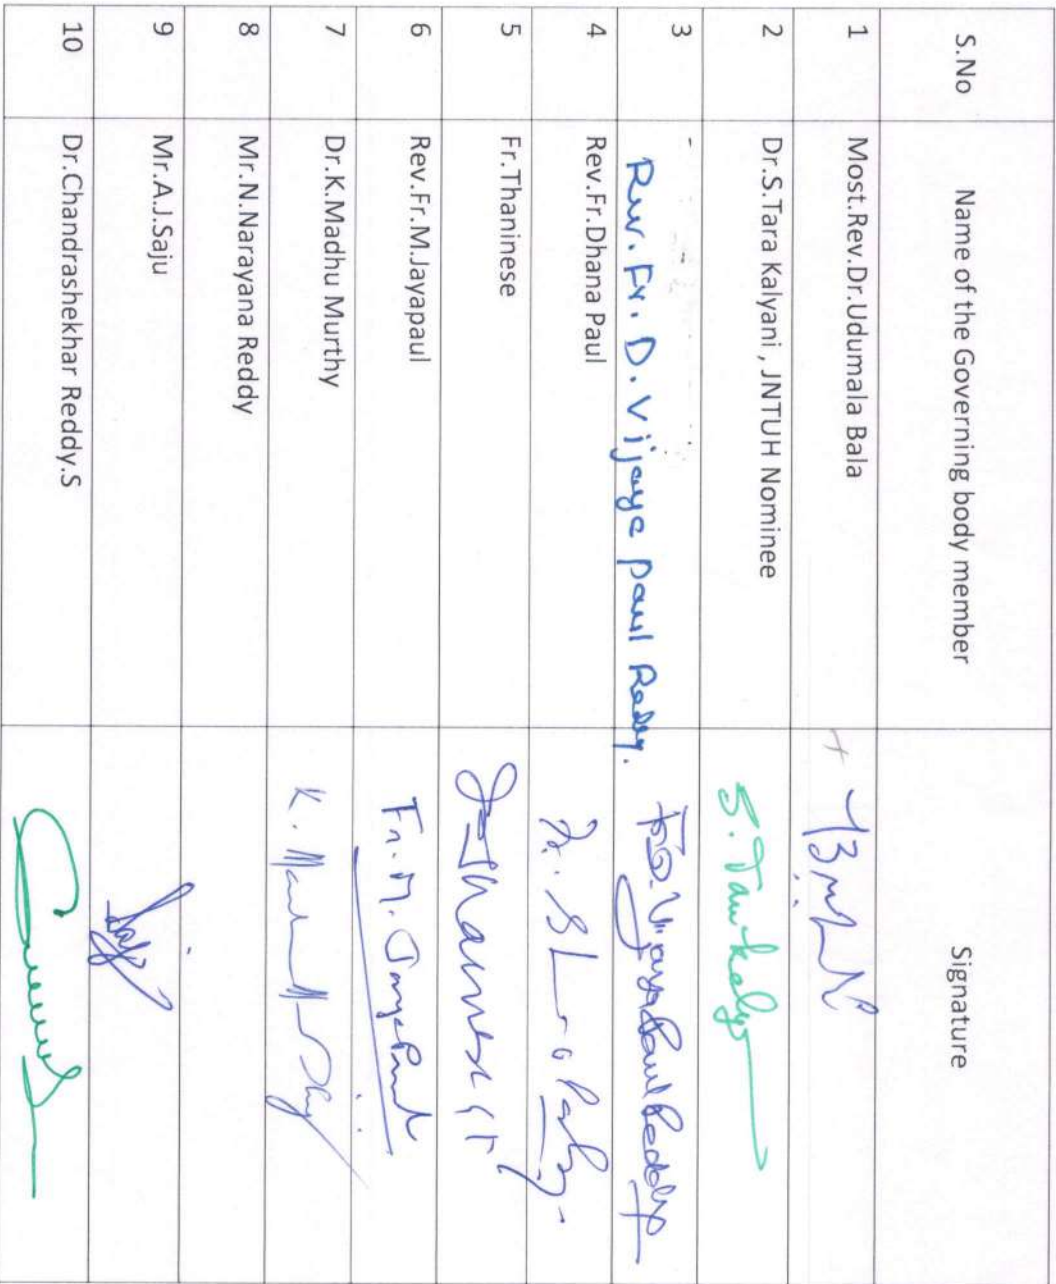 S.No Name of the Governing body member Signature
1 Most.Rev.Dr.Udumala Bala
2 Dr.S.Tara Kalyani , JNTUH Nominee S. Tara Kalya
3 Rev. Fr. D. Vijaya Paul Reddy. Fr. D. Vijaya Paul Reddy
4 Rev.Fr.Dhana Paul Fr.
5 Fr.Thaninese
6 Rev.Fr.M.Jayapaul Fr. M. JayaPaul
7 Dr.K.Madhu Murthy K.
8 Mr.N.Narayana Reddy
9 Mr.A.J.Saju Saju
10 Dr.Chandrashekhar Reddy.S